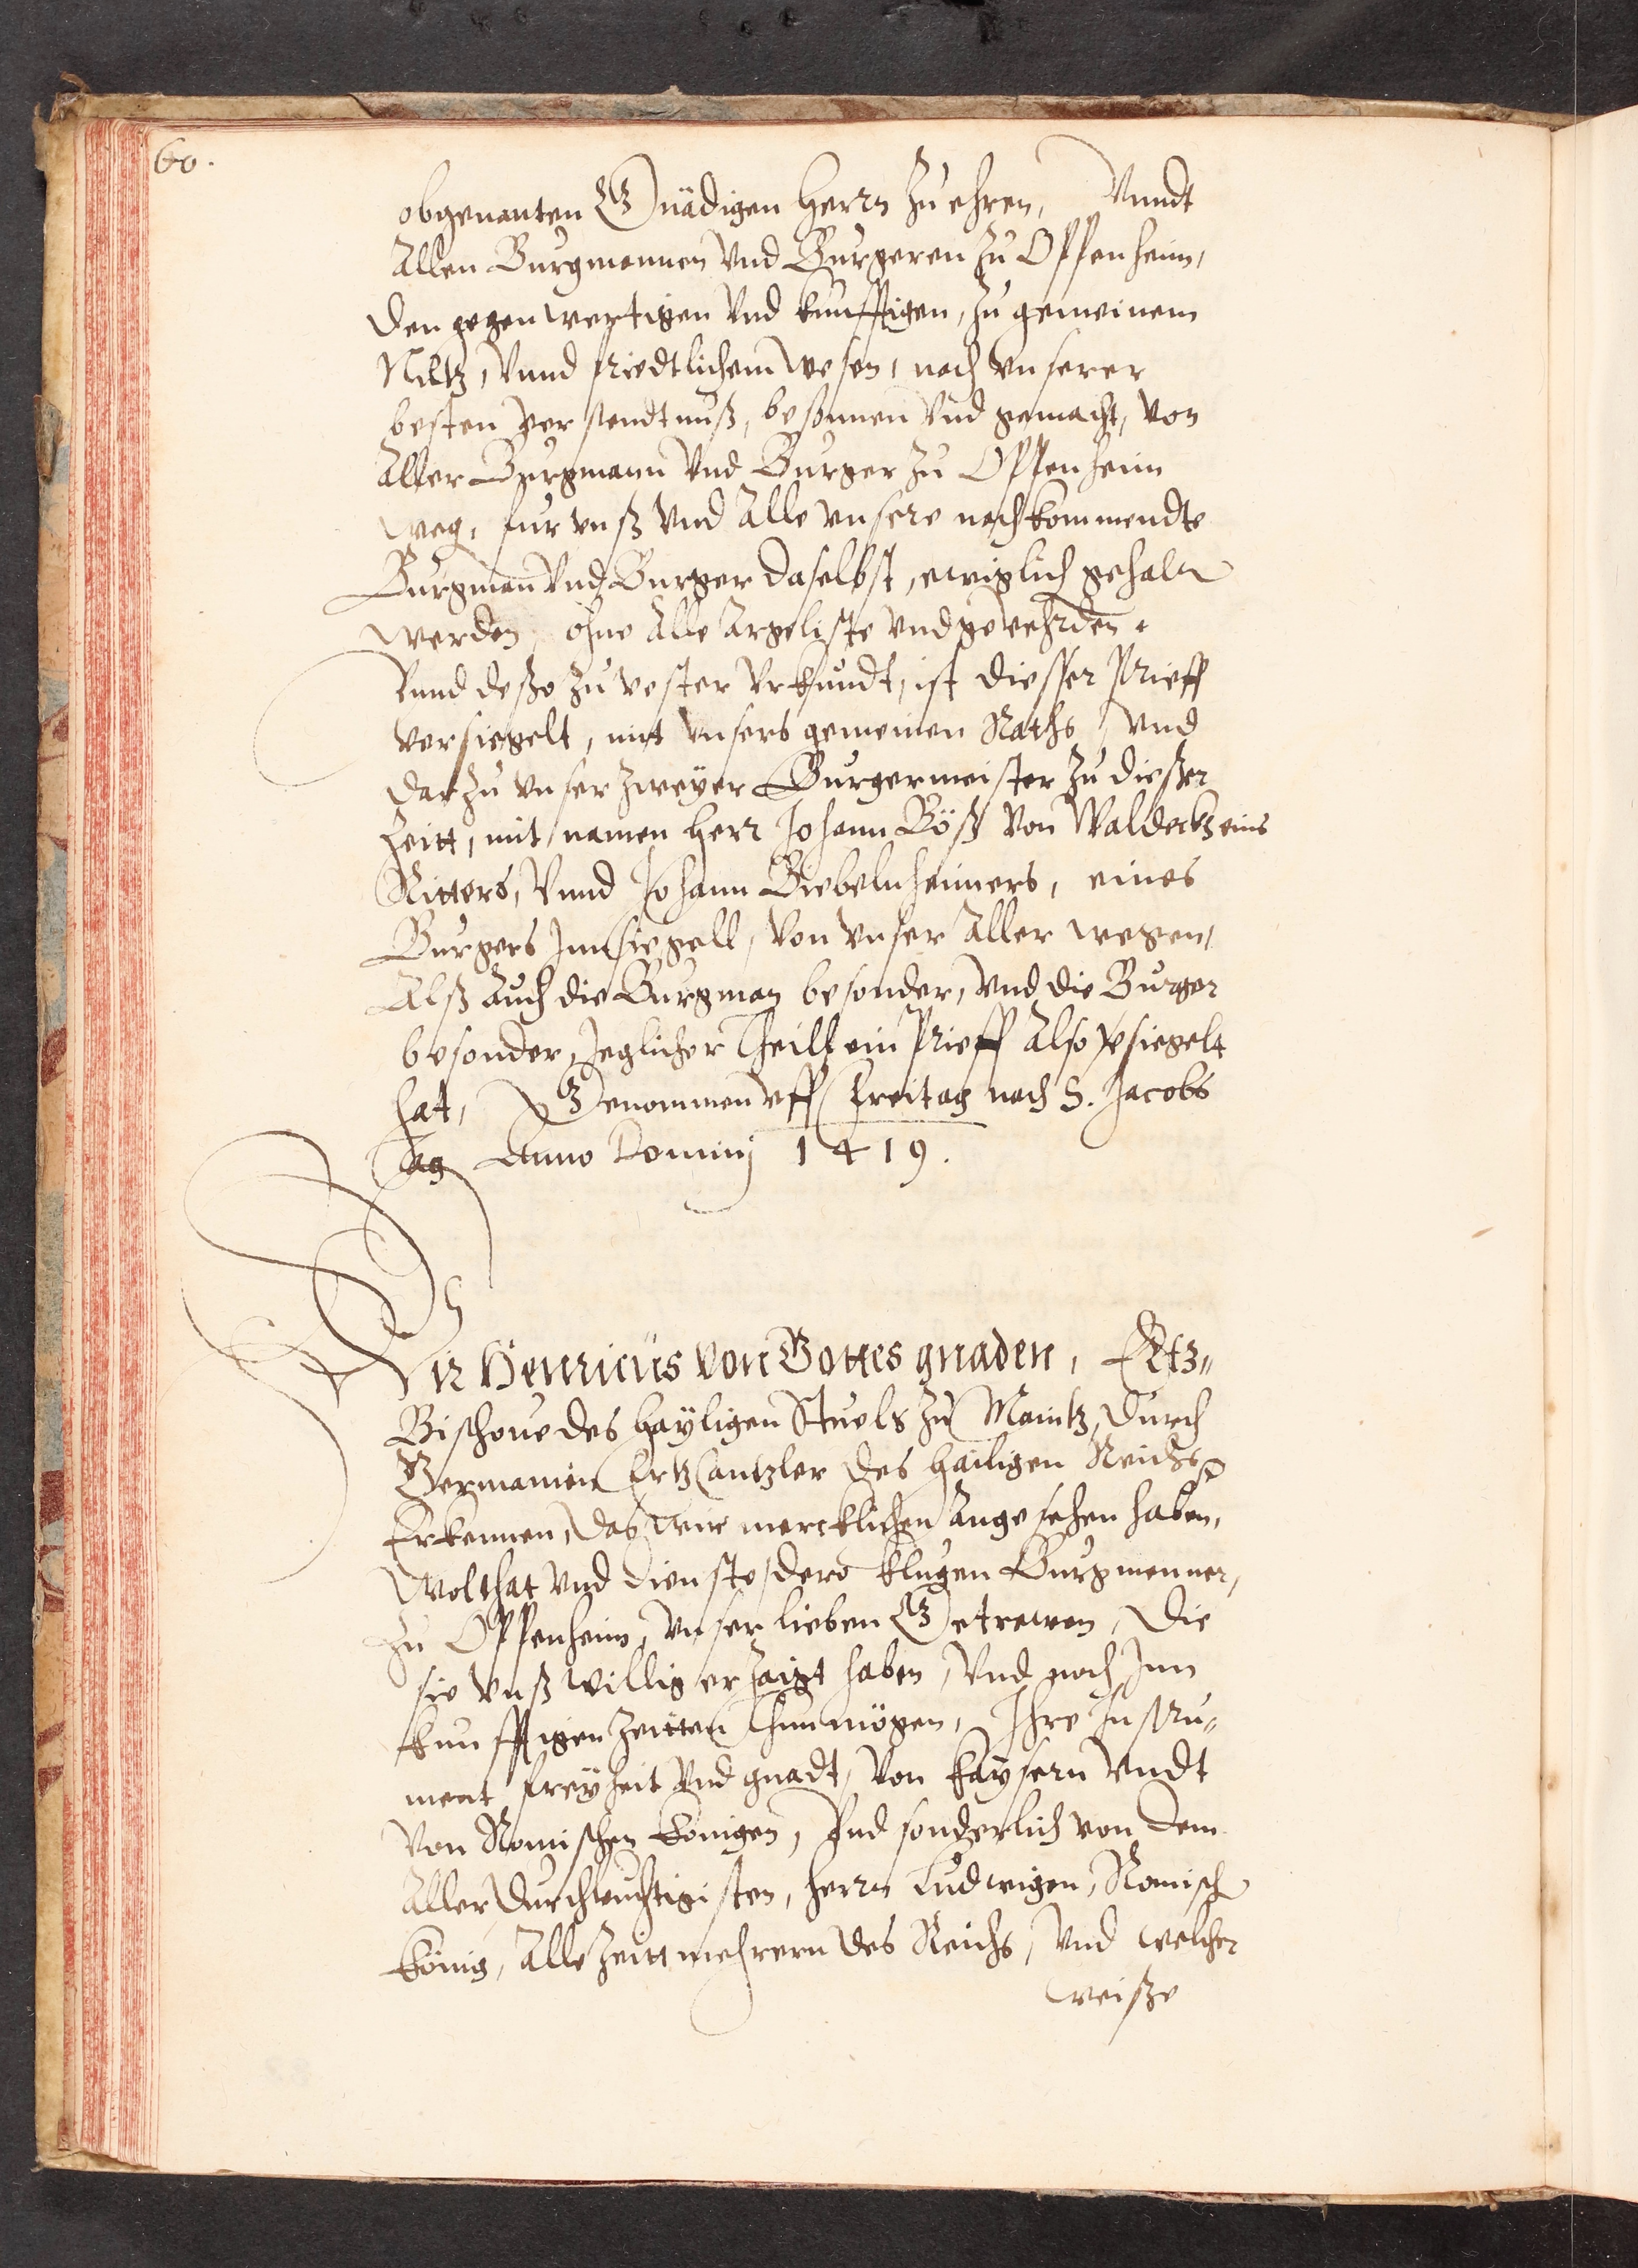 60.
obgenanten Gnädigen Herrn zu ehren, Vnndt
Allen Burgmannen vnd Burgeren zu Oppenheim,
den gegenwertigen vnd kunfftigen, zu gemeinem
Nutz, Vnnd friedtlichem wesen, nach vnserer
besten verstendtnuß, besonnen vnd gemacht, von
Aller Burgmann vnd Burger zu Oppenheim
weg, fur vnß vnd Alle vnsere nachkommendte
Burgman vnd Burger daselbst, ewiglich gehaltn
werden, ohne Alle Argeliste vnd gevehrden.
Vnnd deßo zu vester Vrkundt, ist diesser Brieff
versiegelt, mit vnsers gemeinen Raths, vnd
darzu vnser zweyer Burgermeister zu dießer
Zeitt, mit namen Herr Johann Böß von Waldeckh eins
Ritters, Vnnd Johann Biebelnheimers, eines
Burgers Innsiegell, von vnser Aller wegen,
Alß Auch die Burgman besonder, vnd die Burger
besonder, Jeglicher Theill ein Brieff Also vsiegelt
hat, Genommen vff Freitag nach S. Jacobs
Tag Anno Dominj 1419.
Wir Henricus von Gottes gnaden, Ertz„
Bischove des hayligen Stuels zu Maintz, durch
Germanien ErtzCantzler des hailigen Reichs
Erkennen, das wir mercklichen Angesehen haben,
Wolthat vnd dienste, dero klugen Burgmenner,
zu Oppenheim, vnser lieben Getrewen, die
sie vnß willig erzaigt haben, vnd noch Inn
kunfftigen zeitten thun mögen, Ihre Instru„
ment freyheit vnd gnadt, von Kaysern vndt
von Romischen Konigen, Vnd sonderlich von dem
Allerdurchleuchtigisten, Herrn Ludwigen, Romisch
König, Alle Zeitt mehrern des Reichs, vnd welcher
weiße